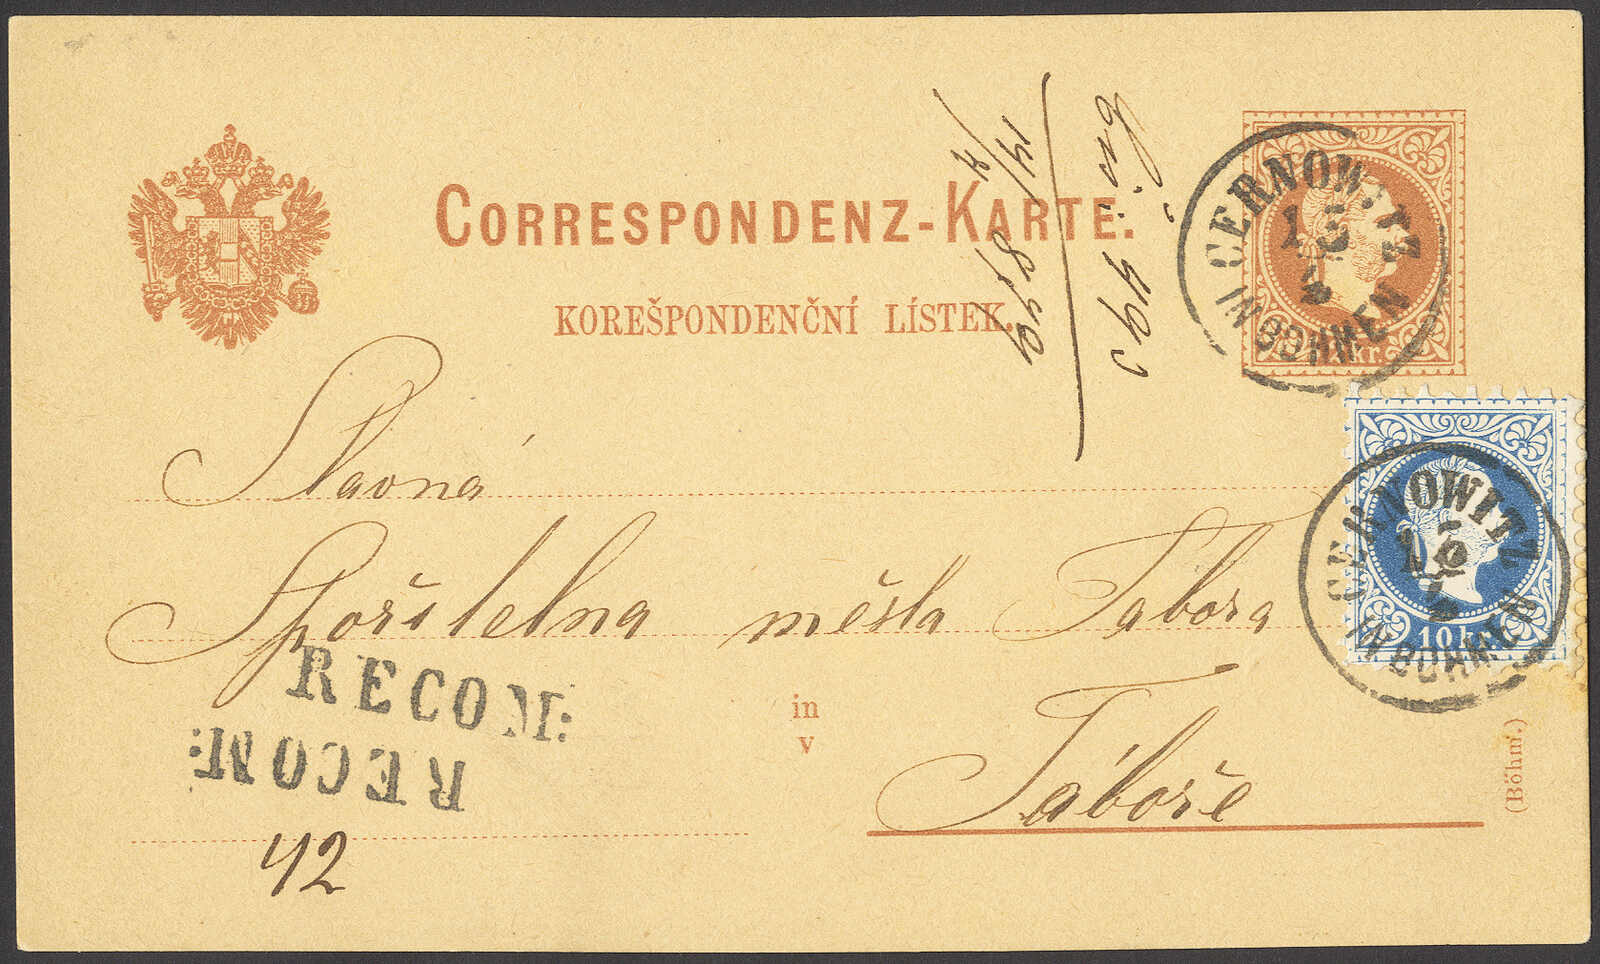 CORRESPONDENZ-KARTE.
KOREŠPONDENČNÍ LÍSTEK.
CERNOWITZ
IN BÖHMEN
2 kr.
CERNOWITZ
IN BÖHMEN
10 kr.
Slavná
Spořitelna města Tábora
in
v
Táboře
RECOM:
RECOM:
42
(Böhm.)